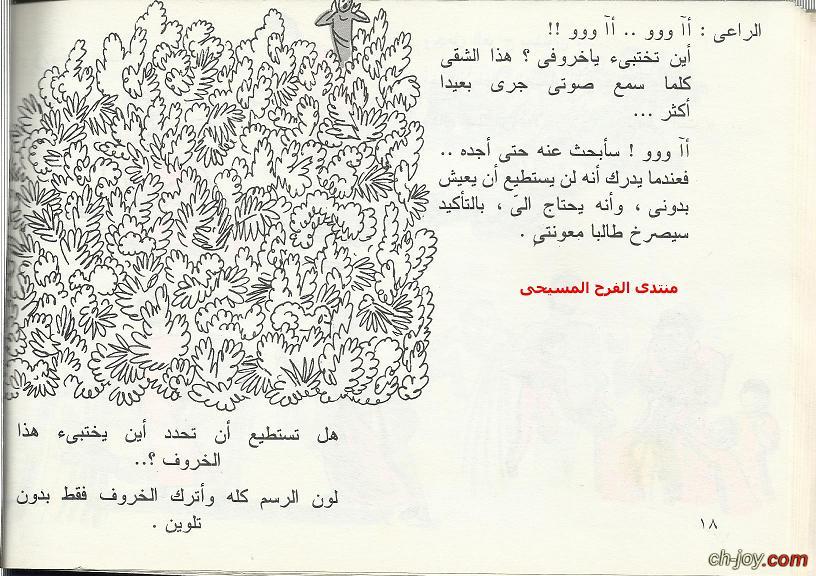 الراعى : أآ ووو .. أآ ووو !!
أين تختبىء ياخروفى ؟ هذا الشقى
كلما سمع صوتى جرى بعيدا
أكثر ...
أآ ووو ! سأبحث عنه حتى أجده ..
فعندما يدرك أنه لن يستطيع أن يعيش
بدونى ، وأنه يحتاج الىّ ، بالتأكيد
سيصرخ طالبا معونتى .
منتدى الفرح المسيحى
هل تستطيع أن تحدد أين يختبىء هذا
الخروف ؟..
لون الرسم كله وأترك الخروف فقط بدون
تلوين .
١٨
ch-joy.com